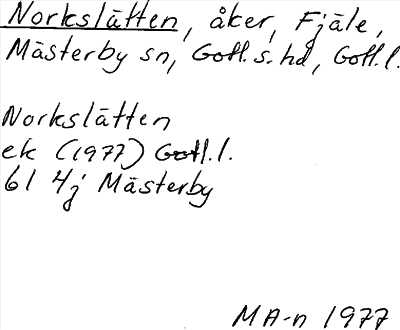 Norkslätten, åker, Fjäle,
Mästerby sn, Gotl. s. hd, Gotl. l.
Norkslätten
ek (1977) Gotl. l.
61 4j Mästerby
MA-n 1977